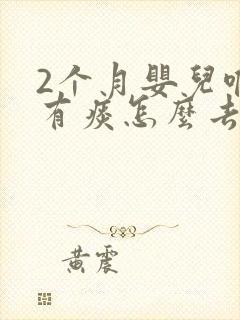 2个月嬰兒
有痰怎麼去
黄震